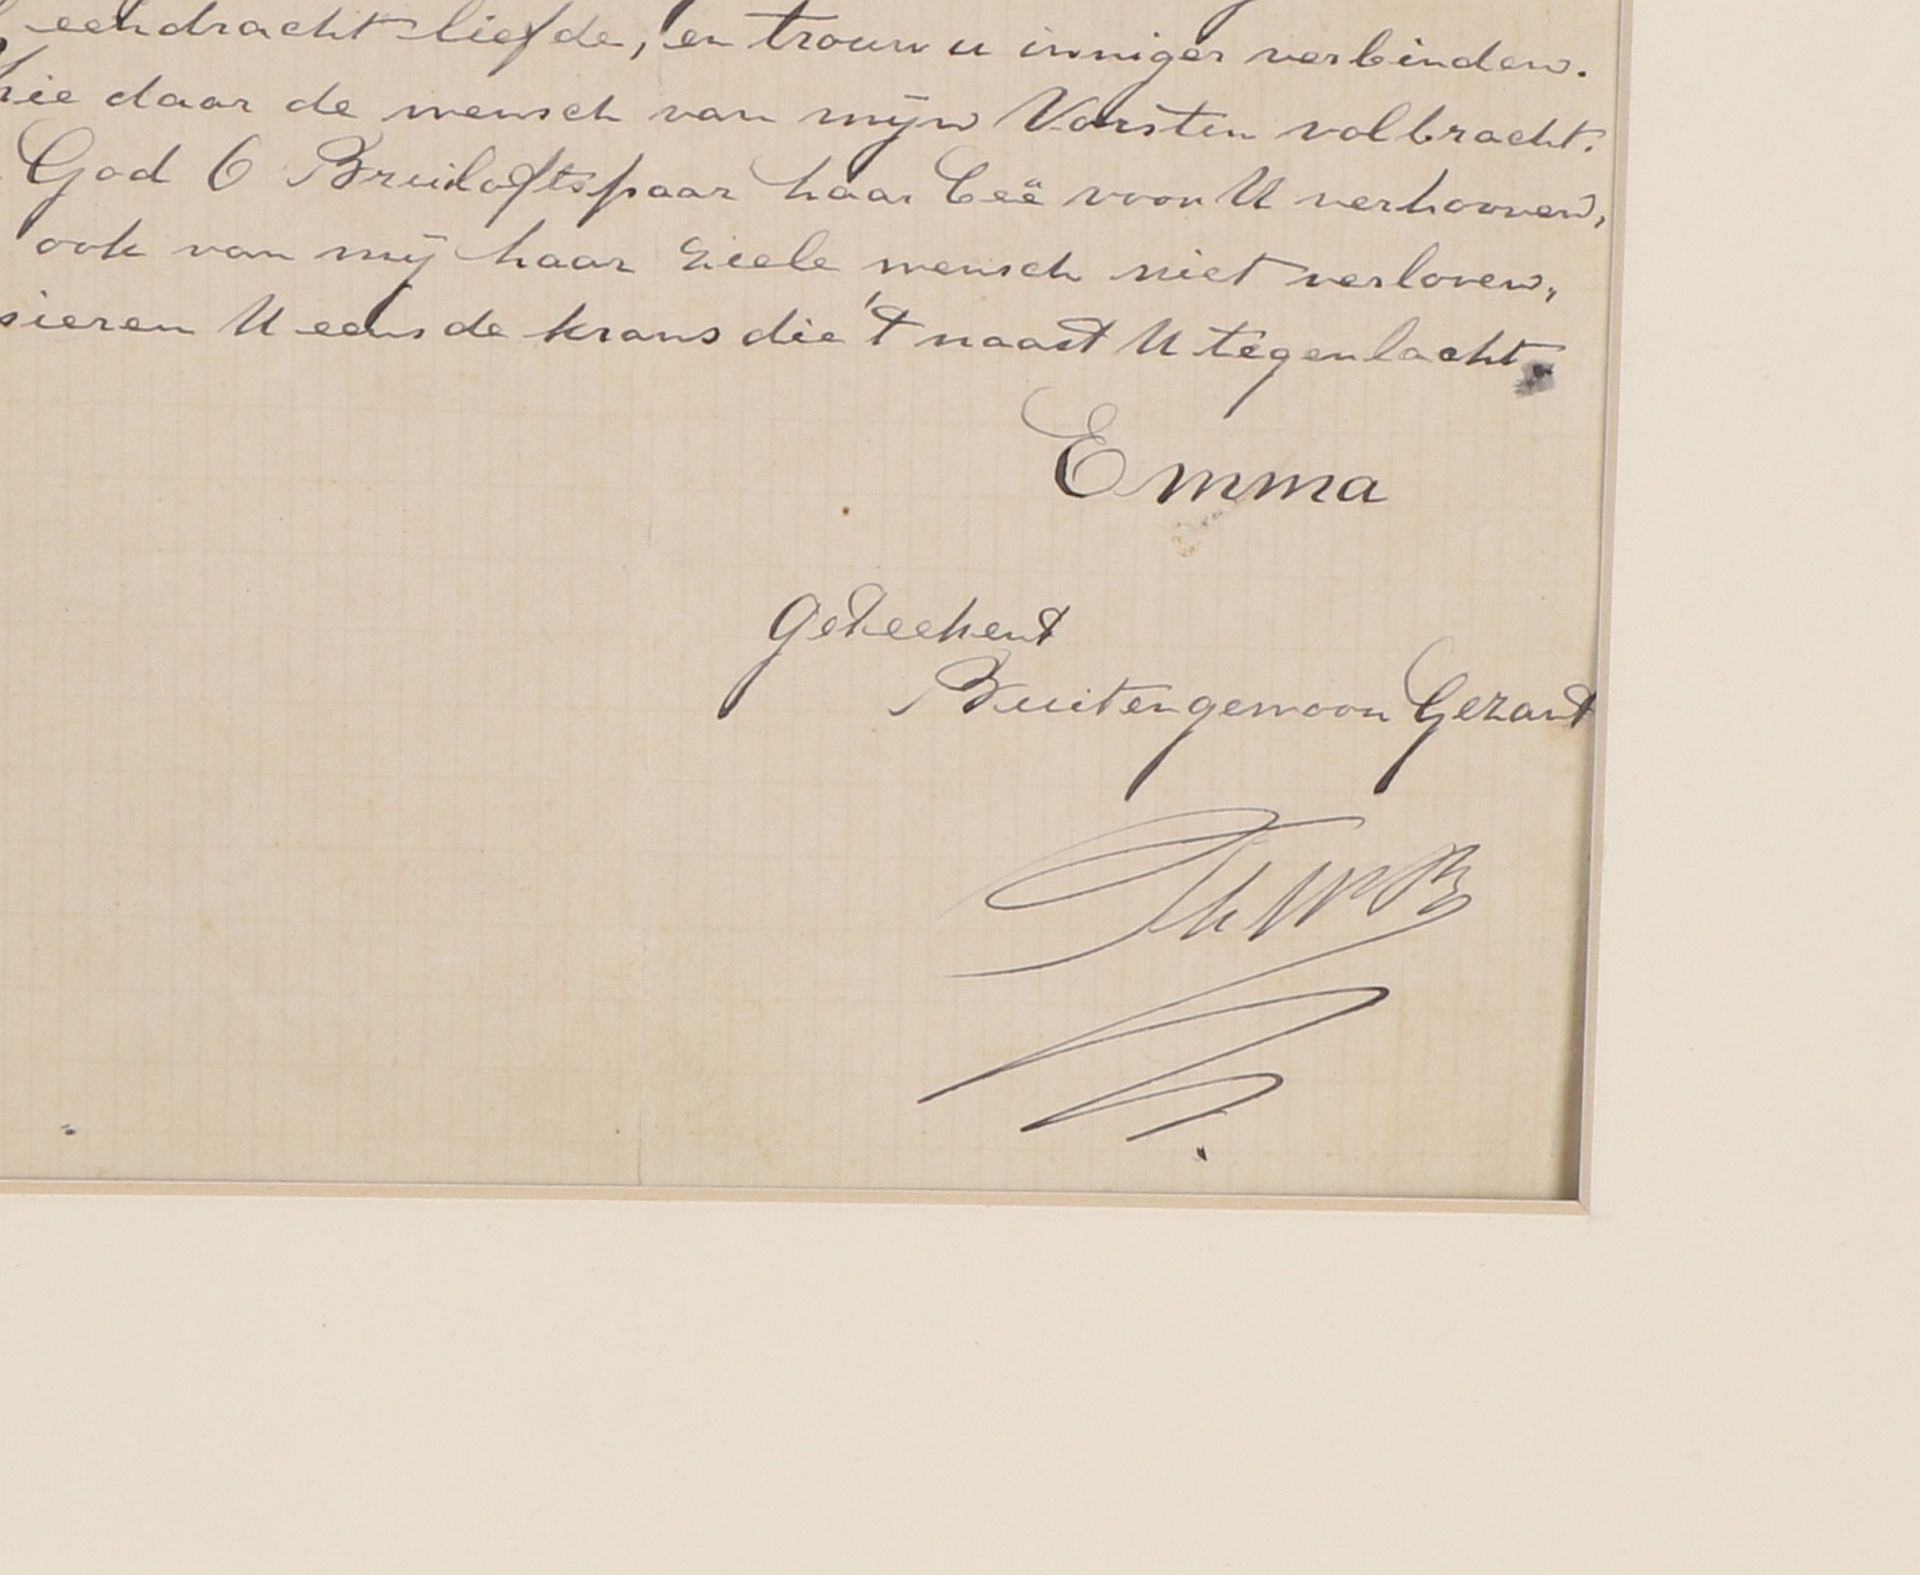 eendracht liefde, en trouw u inniger verbinden.
hie daar de wensch van mijn Vorstin volbracht.
God O Bruiloftspaar haar beë voor U verhooren,
ook van mij haar ziele wensch niet verloren,
sieren U eens de krans die 't naast U tegenlacht.
Emma
geteekent
Buitengewoon Gezant